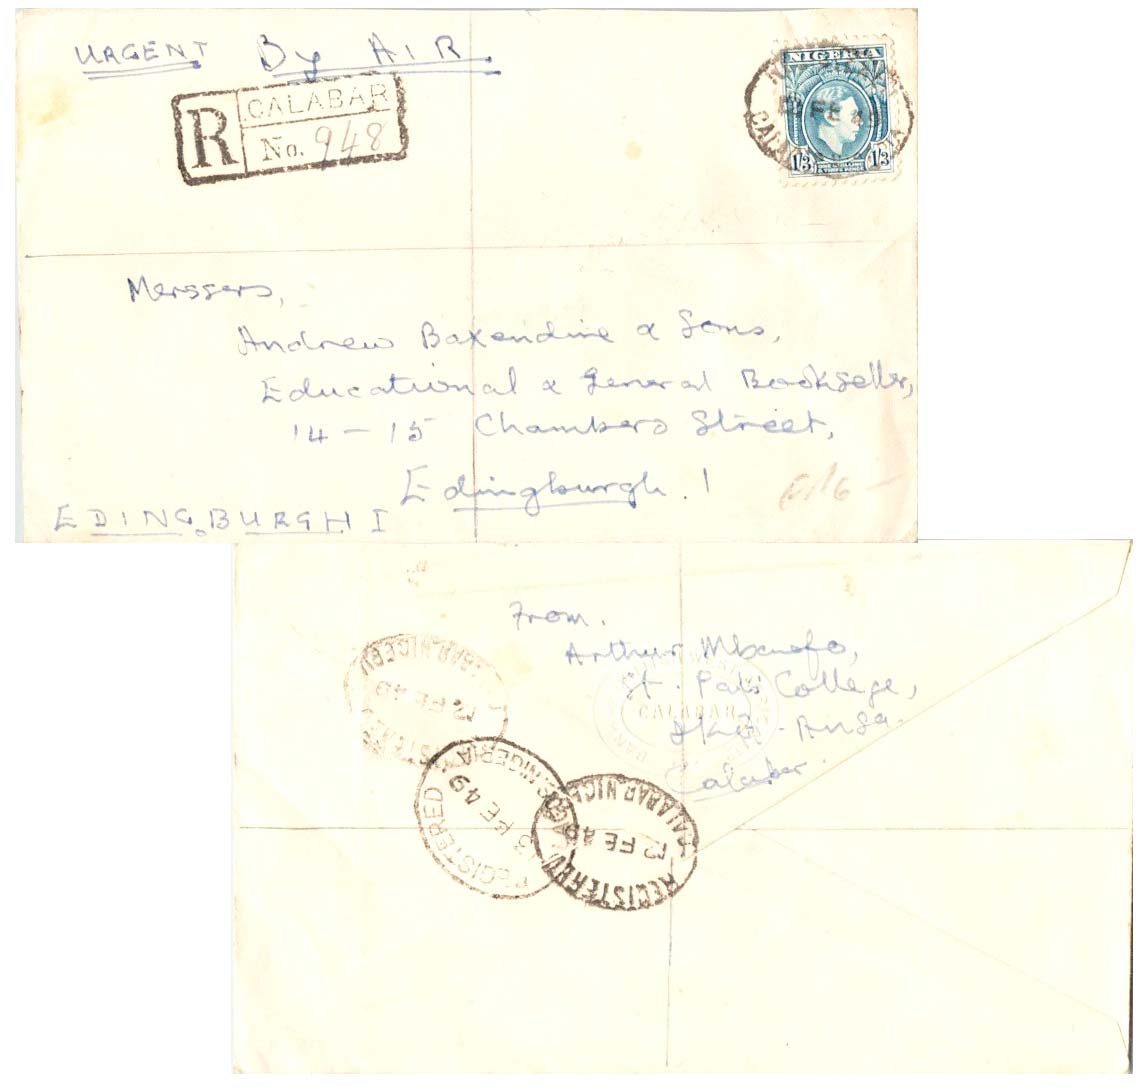 URGENT By AIR
R CALABAR
No. 948
NIGERIA
FE 49
1/3 1/3
ONE SHILLING
& THREE PENCE
Merssers,
Andrew Baxendine & Sons,
Educational & General Booksellers,
14 - 15 Chambers Street,
Edingburgh. 1
EDINGBURGH I
From.
Arthur Mbanefo,
St. Pats College,
Ikot-Ansa.
Calabar.
CALABAR
CALABAR, NIGERIA
12 FE 49
REGISTERED
REGISTERED LAGOS, NIGERIA
13 FE 49
REGISTERED
CALABAR, NIGERIA
12 FE 49